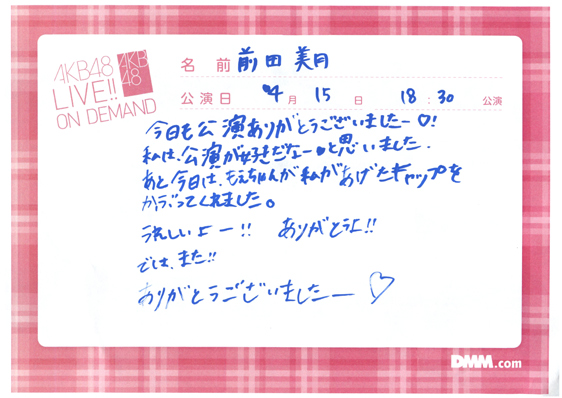 AKB48
LIVE!!
ON DEMAND
AKB
48
名前 前田 美月
公演日 4月 15日 18:30 公演
今日も公演ありがとうございましたー♡!
私は、公演が好きだなー♥と思いました.
あと今日は、もえちゃんが私があげたキャップを
かぶってくれました。
うれしいよー!! ありがとうよ!!
では、また!!
ありがとうございましたー ♡
DMM.com